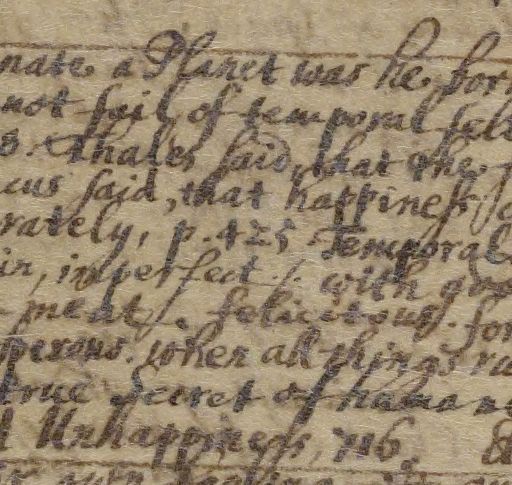 nate a Planet was he born
not fail of temporal feli
s. Thales said, that the
cus said, that happiness
rately, p. 425 Temporal
ir, imperfect. with
meat. felicitous. for
sperous. when all things ru
true Secret of humane
Unhappiness, 716.